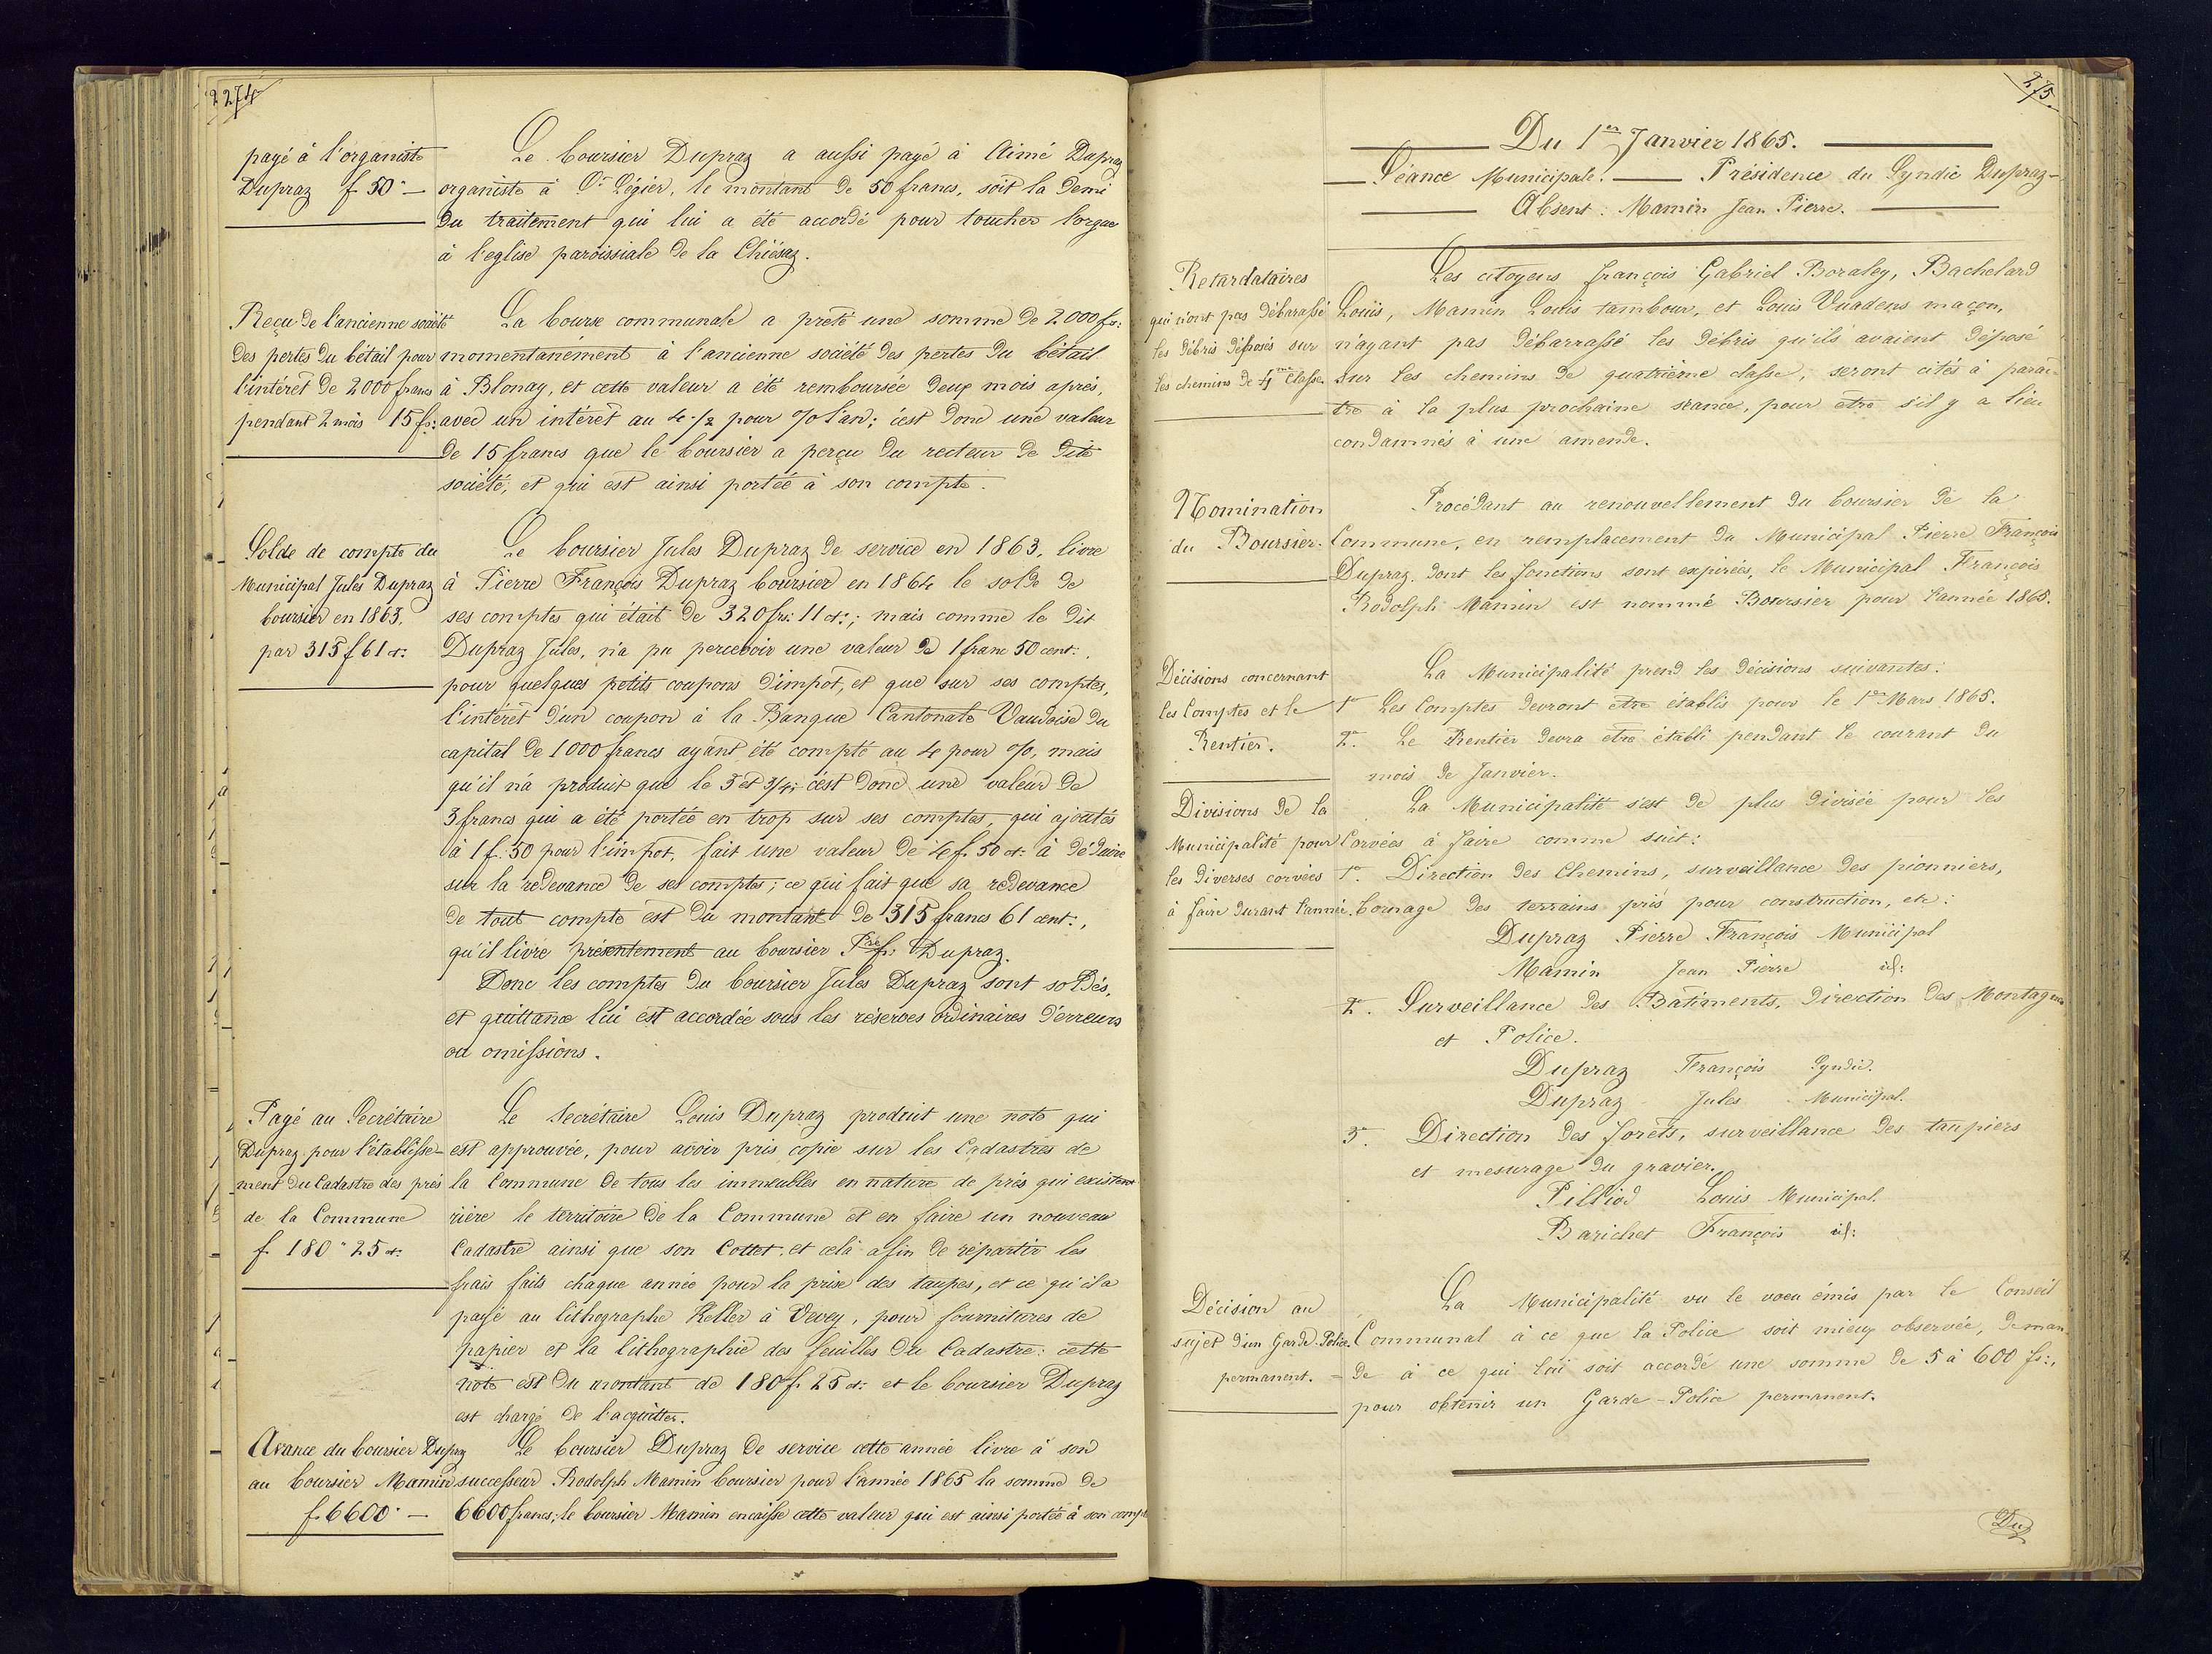 274
payé à l'organiste
Dupraz f 50 " —
Le boursier Dupraz a aussi payé à Aimé Dupraz
organiste à St Légier, le montant de 50 francs, soit la demi
du traitement qui lui a été accordé pour toucher l'orgue
à l'eglise paroissiale de la Chiésaz.
Reçu de l'ancienne société
des pertes du bétail pour
l'intérêt de 2000 francs
pendant 2 mois 15 fs:
La bourse communale a prêté une somme de 2000 frs:
momentanément à l'ancienne société des pertes du bétail
à Blonay, et cette valeur a été remboursée deux mois après,
avec un intérêt au 4 1/2 pour % l'an; c'est donc une valeur
de 15 francs que le boursier a perçu du recteur de dite
société, et qui est ainsi portée à son compte.
Solde de compte du
Municipal Jules Dupraz
boursier en 1863.
par 315 f 61 ct:
Le boursier Jules Dupraz de service en 1863, livre
à Pierre François Dupraz boursier en 1864 le solde de
ses comptes qui était de 320 frs: 11 ct:; mais comme le dit
Dupraz Jules, n'a pu percevoir une valeur de 1 franc 50 cent:,
pour quelques petits coupons d'impot, et que sur ses comptes,
l'intérêt d'un coupon à la Banque Cantonale Vaudoise du
capital de 1000 francs ayant été compté au 4 pour %, mais
qu'il n'a produit que le 3 et 3/4; c'est donc une valeur de
3 francs qui a été portée en trop sur ses comptes, qui ajoutés
à 1 f. 50 pour l'impot, fait une valeur de 4 f. 50 ct: à déduire
sur la redevance de ses comptes; ce qui fait que sa redevance
de tout compte est du montant de 315 francs 61 cent:,
qu'il livre présentement au boursier Pre fs: Dupraz.
Donc les comptes du boursier Jules Dupraz sont soldés,
et quittance lui est accordée sous les réserves ordinaires d'erreurs
ou omissions.
Payé au Secrétaire
Dupraz pour l'établisse-
ment du Cadastre des prés
de la Commune
f. 180 " 25 ct:
Le Secrétaire Louis Dupraz produit une note qui
est approuvée, pour avoir pris copie sur les Cadastres de
la Commune de tous les immeubles en nature de prés qui existent
rière le territoire de la Commune et en faire un nouveau
Cadastre ainsi que son Cottet, et celà afin de répartir les
frais faits chaque année pour la prise des taupes, et ce qu'il a
payé au lithographe Keller à Vevey, pour fournitures de
papier et la lithographie des feuilles du Cadastre: cette
note est du montant de 180 f. 25 ct: et le boursier Dupraz
est chargé de l'acquitter.
Avance du boursier Dupraz
au boursier Mamin
f. 6600 " —
Le boursier Dupraz de service cette année livre à son
successeur Rodolph Mamin boursier pour l'année 1865 la somme de
6600 francs; le boursier Mamin encaisse cette valeur qui est ainsi portée à son compte
275.
Du 1er Janvier 1865.
Séance Municipale. — Présidence du Syndic Dupraz —
Absent: Mamin Jean Pierre.
Retardataires
qui n'ont pas débarassé
les débris déposés sur
les chemins de 4me classe.
Les citoyens françois Gabriel Boraley, Bachelard
Louis, Mamin Louis tambour, et Louis Vuadens maçon,
n'ayant pas débarrassé les débris qu'ils avaient déposé
sur les chemins de quatrième classe, seront cités à parai-
tre à la plus prochaine séance, pour être s'il y a lieu
condamnés à une amende.
Nomination
du Boursier.
Procédant au renouvellement du boursier de la
Commune, en remplacement du Municipal Pierre François
Dupraz dont les fonctions sont expirées, le Municipal François
Rodolph Mamin est nommé Boursier pour l'année 1865.
Décisions concernant
les Comptes et le
Rentier.
La Municipalité prend les décisions suivantes:
1° Les Comptes devront être établis pour le 1er Mars 1865.
2° Le Rentier devra être établi pendant le courant du
mois de Janvier.
Divisions de la
Municipalité pour
les diverses corvées
à faire durant l'année.
La Municipalité s'est de plus divisée pour les
Corvées à faire comme suit:
1°. Direction des Chemins, surveillance des pionniers,
bornage des terrains pris pour construction, etc:
Dupraz Pierre François Municipal
Mamin Jean Pierre id:
2°. Surveillance des Batiments, direction des Montagnes
et Police.
Dupraz François Syndic.
Dupraz Jules Municipal.
3°. Direction des forêts, surveillance des taupiers
et mesurage du gravier.
Pilliod Louis Municipal.
Barichet François id:
Décision au
sujet d'un Garde Police
permanent.
La Municipalité vu le voeu émis par le Conseil
Communal à ce que la Police soit mieux observée, deman-
de à ce qui lui soit accordé une somme de 5 à 600 fs:,
pour obtenir un Garde-Police permanent.
Du